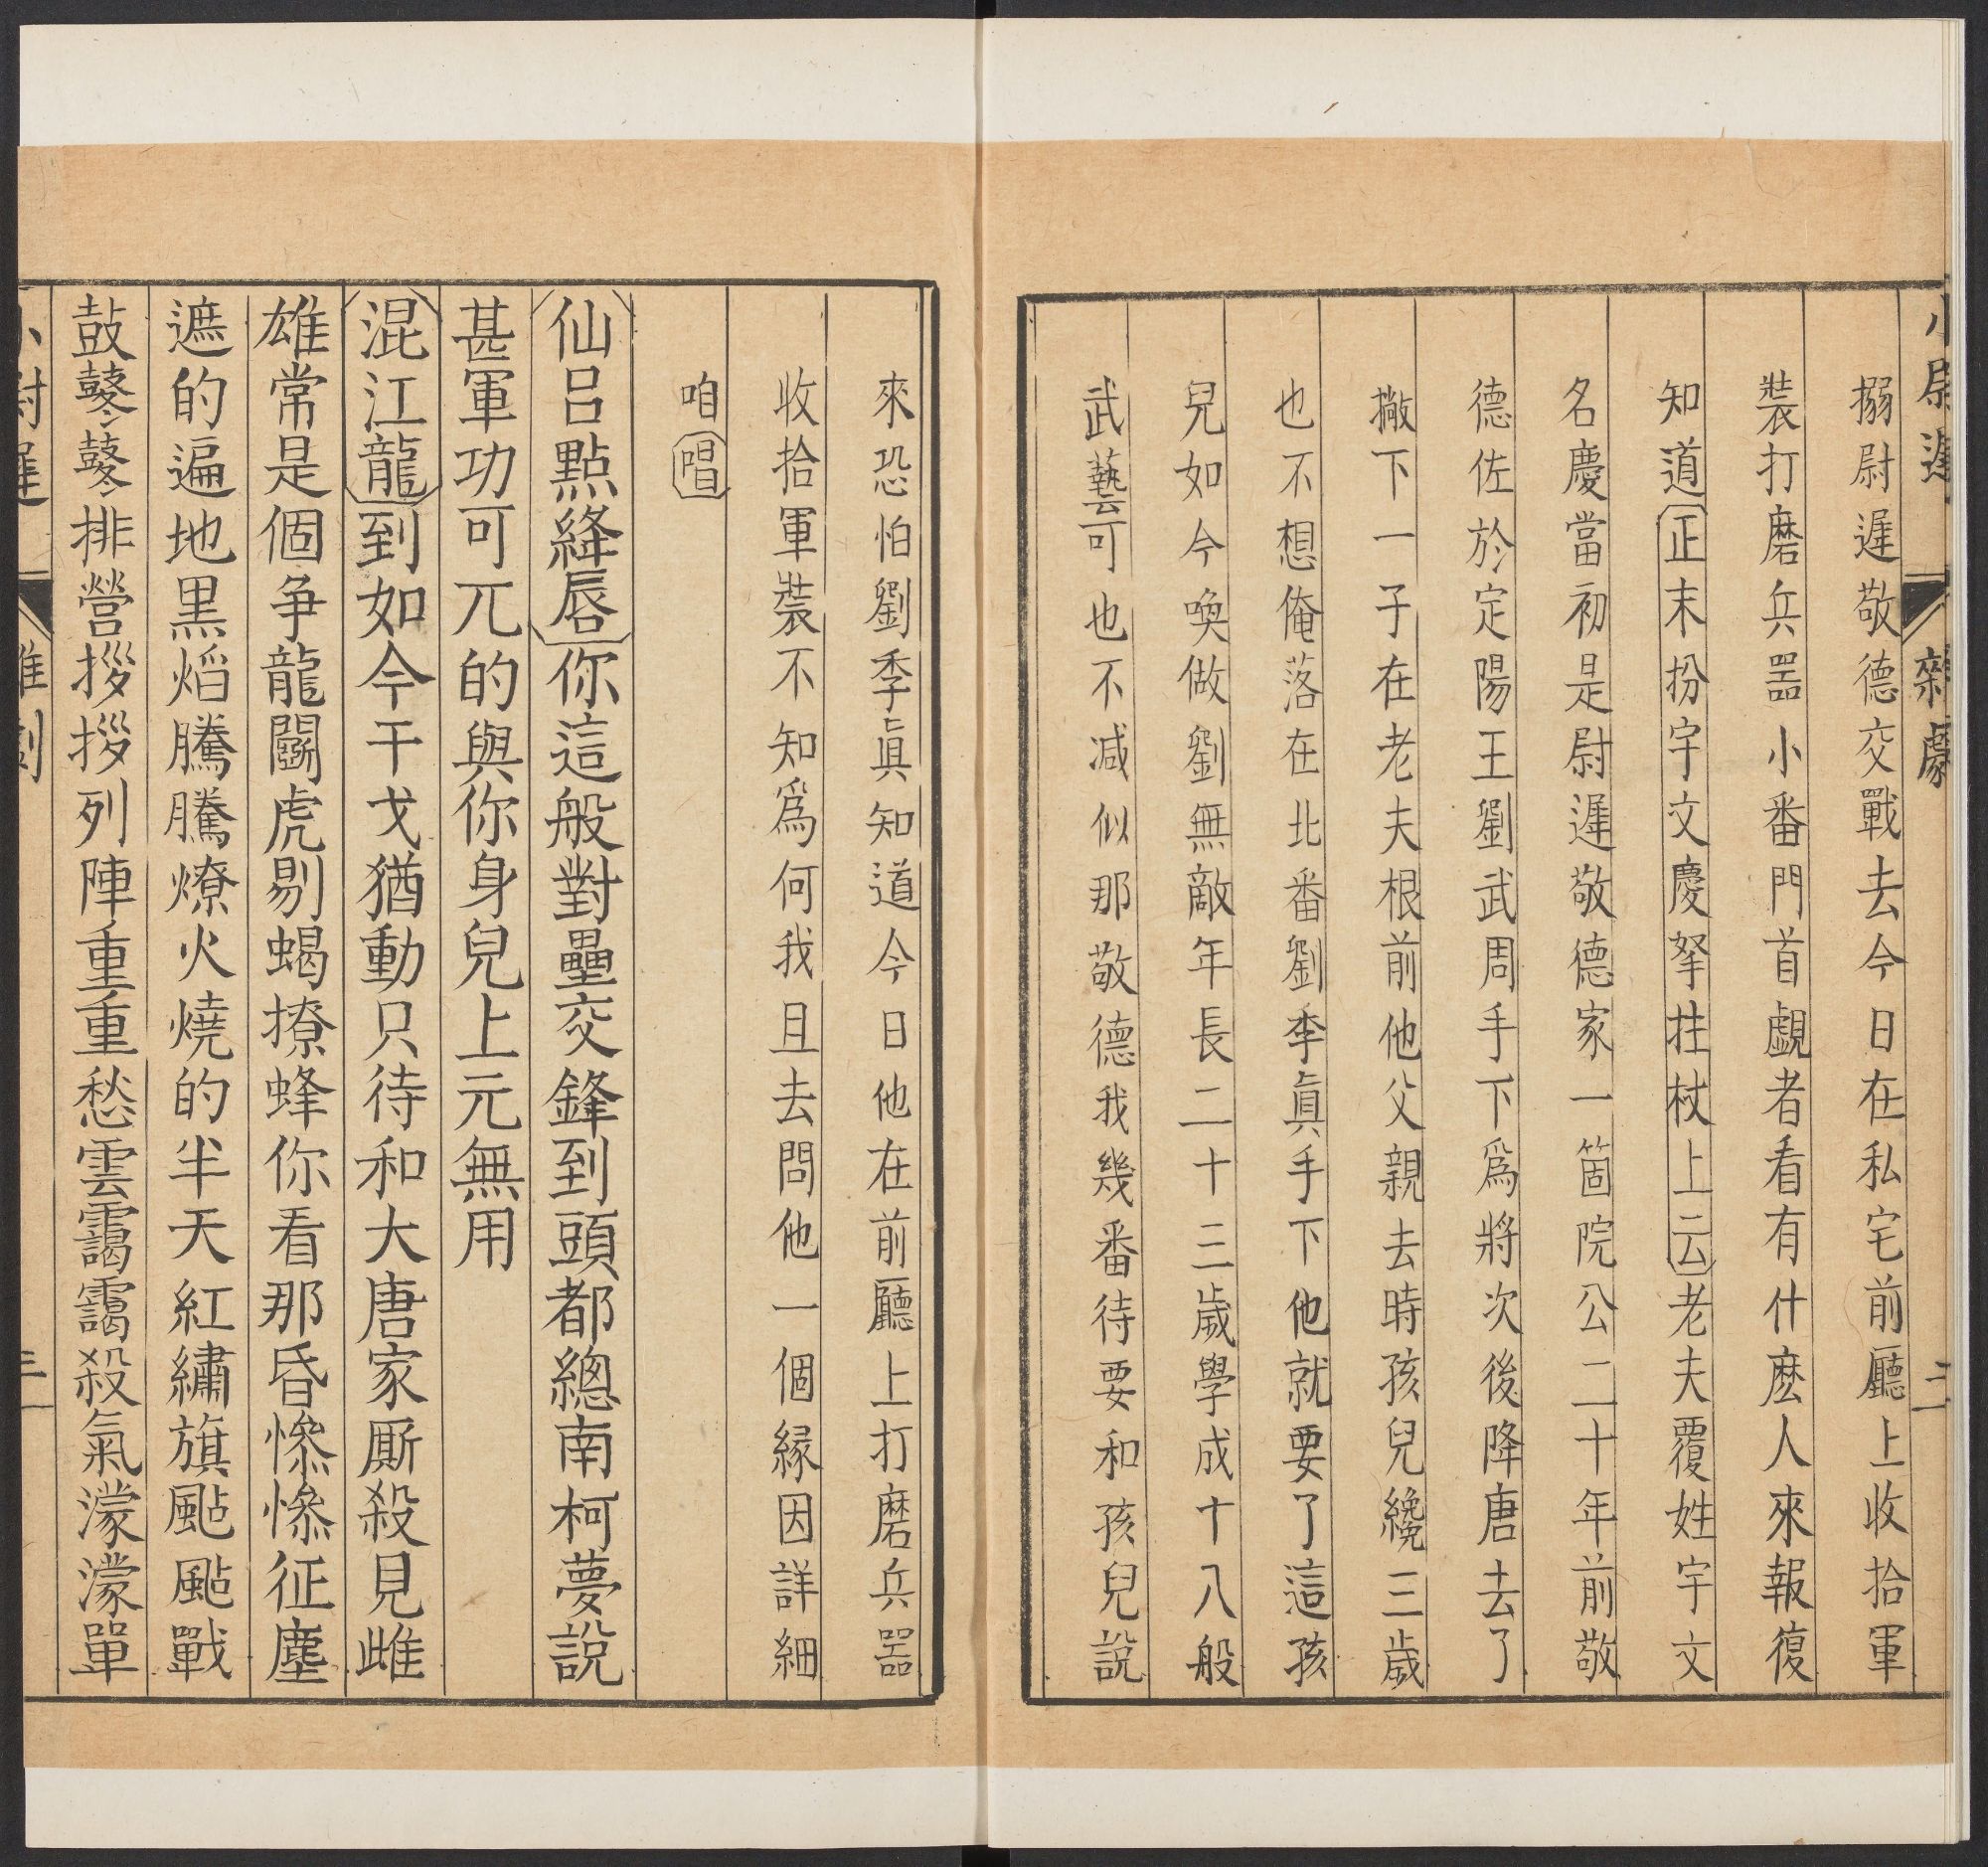 小尉遲 雜劇 三
搦尉遲敬德交戰去今日在私宅前廳上收拾軍
裝打磨兵噐小番門首覷者看有什麽人來報復
知道正末扮宇文慶拏拄杖上云老夫覆姓宇文
名慶當初是尉遲敬德家一箇院公二十年前敬
德佐於定陽王劉武周手下爲將次後降唐去了
撇下一子在老夫根前他父親去時孩兒纔三歲
也不想俺落在北番劉季眞手下他就要了這孩
兒如今喚做劉無敵年長二十三歲學成十八般
武藝可也不减似那敬德我幾番待要和孩兒說
來恐怕劉季眞知道今日他在前廳上打磨兵噐
收拾軍裝不知爲何我且去問他一個緣因詳細
咱唱
仙呂點絳唇你這般對壘交鋒到頭都總南柯夢説
甚軍功可兀的與你身兒上元無用
混江龍到如今干戈猶動只待和大唐家厮殺見雌
雄常是個争龍鬭虎剔蝎撩蜂你看那昏慘慘征塵
遮的遍地黒焰騰騰燎火燒的半天紅繡旗颭颭戰
鼓鼕鼕排營拶拶列陣重重愁雲靄靄殺氣濛濛單
小尉遲 雜劇 三